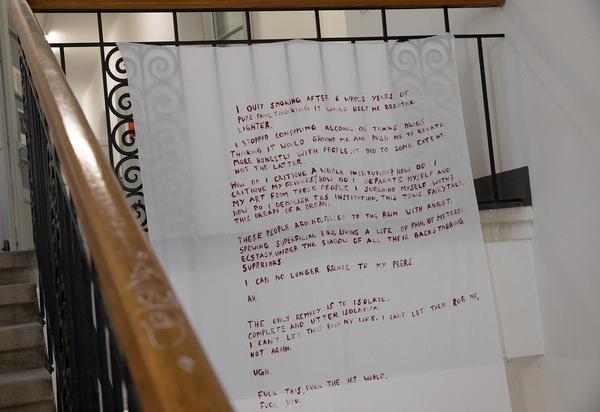 I QUIT SMOKING AFTER 6 WHOLE YEARS OF
PURE PAIN, THINKING IT WOULD HELP ME BREATHE
LIGHTER.
I STOPPED CONSUMING ALCOHOL OR TAKING DRUGS
THINKING IT WOULD GROUND ME AND PUSH ME TO RELATE
MORE HONESTLY WITH PEOPLE. IT DID TO SOME EXTENT.
NOT THE LATTER.
HOW DO I CRITIQUE A WHOLE INSTITUTION? HOW DO I
CRITIQUE MY FRIENDS? HOW DO I SEPARATE MYSELF AND
MY ART FROM THESE PEOPLE I SURROUND MYSELF WITH?
HOW DO I DEMOLISH THIS INSTITUTION, THIS TOXIC FAIRYTALE,
THIS DREAM OF A DREAM.
THESE PEOPLE AROUND, FILLED TO THE BRIM WITH ANGST,
SPEWING SUPERFICIAL LIES, LIVING A LIFE OF PAIN, OF
ECSTASY, UNDER THE SHADOW OF ALL THEIR BACKSTABBING
SUPERIORS.
I CAN NO LONGER RELATE TO MY PEERS.
AH
THE ONLY REMEDY IS TO ISOLATE.
COMPLETE AND UTTER ISOLATION.
I CAN'T LET THIS RUIN MY LIFE. I CAN'T LET THEM ROB ME,
NOT AGAIN.
UGH.
FUCK THIS, FUCK THE ART WORLD.
FUCK YOU.